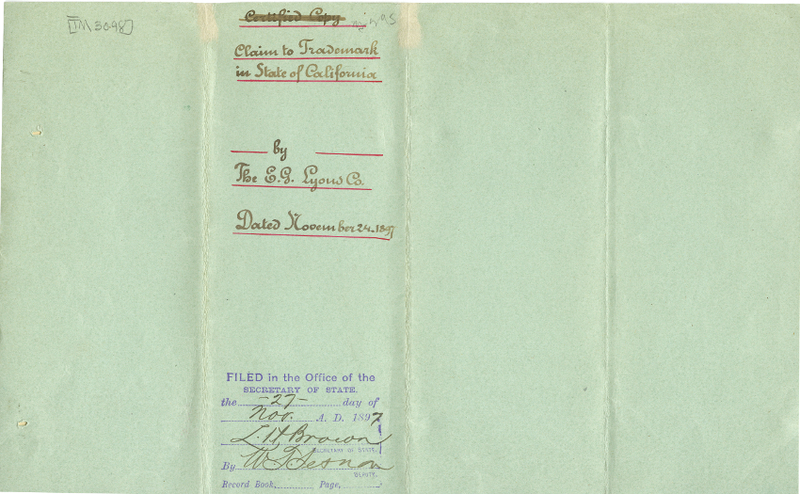 [TM 3098]
Certified Copy
Claim to Trademark
in State of California
by
The E.G. Lyons Co.
Dated November 24-1897
FILED in the Office of the
SECRETARY OF STATE.
the -27- day of
Nov. A. D. 1897
L. H Brown
SECRETARY OF STATE.
By
DEPUTY.
Record Book, Page,